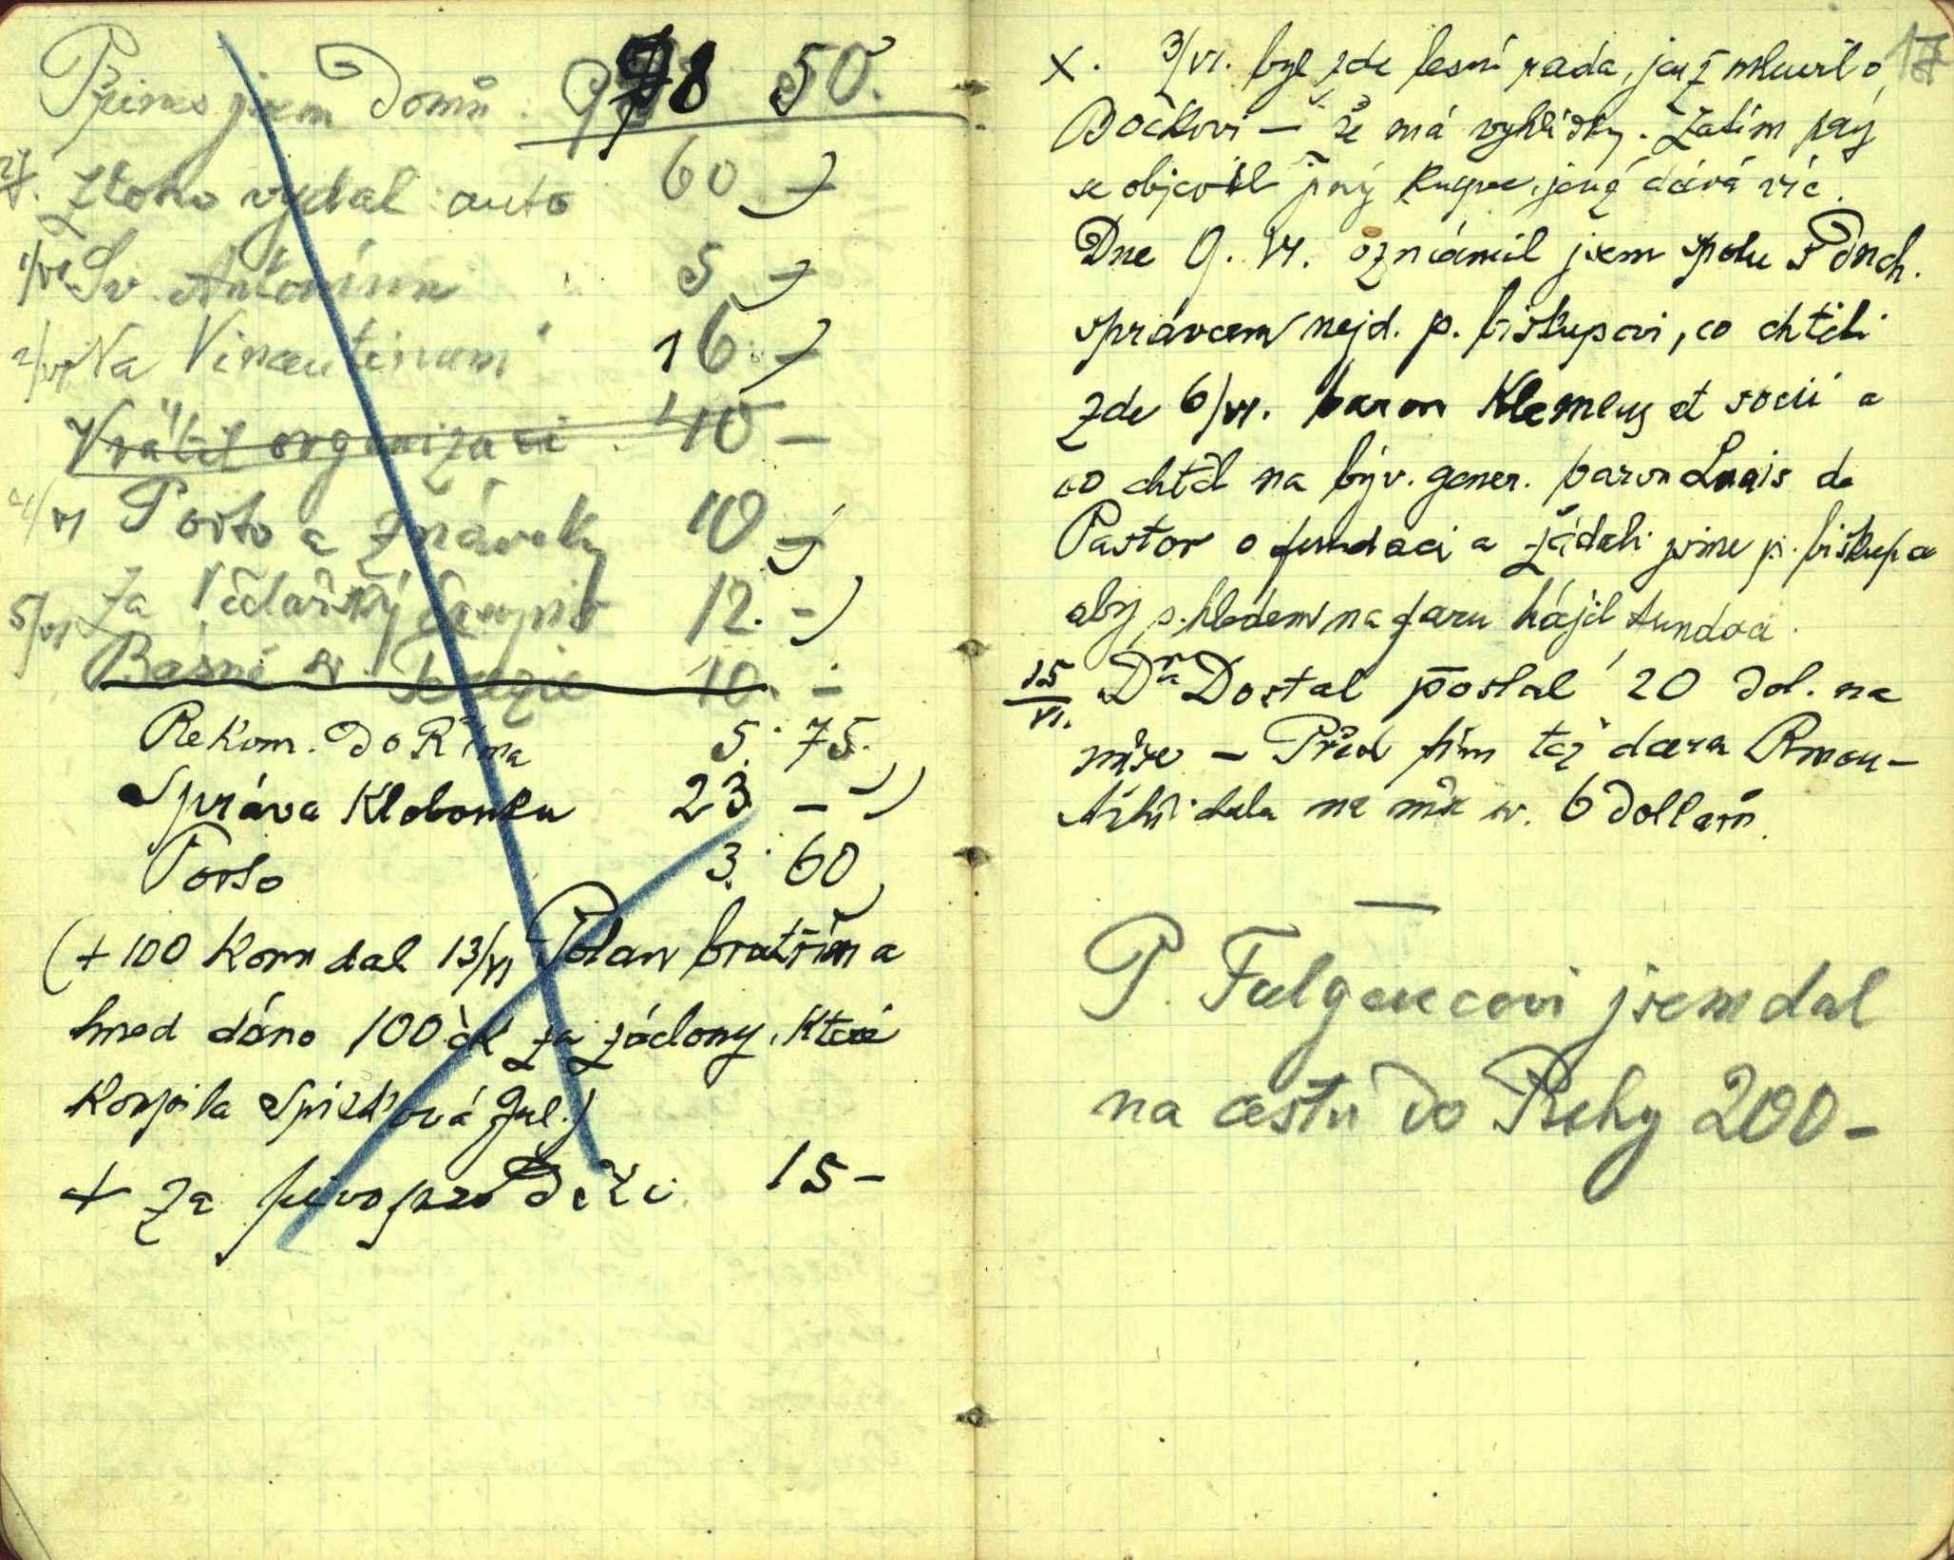 Přines jsem domů 98 50.
27. Z toho vydal auto 60 –
1/VI Sv. Antonínu 5 –
2/VI Na Vincentinum 16 –
Vrátil organizaci 40 –
4/VI Porto a známky 10 –
5/VI Za Včdařský časopis 12. –
Básně sv. 10. –
Rekom. do Říma 5. 75.
Správa Klobouku 23 –
Porto 3. 60
(+ 100 Korun dal 13/VI bratřím a
hned dáno 100 čk za záclony, které
koupila Jul.)
+ za pivo pro 15 –
17
X. 3/VI. byl zde lesní rada, jenž mluvil o
Dočkovi – že má vyhlídky. Zatím prý
se objevil jiný kupec, jenž dává víc.
Dne 9. VI. oznámil jsem spolu s duch.
správcem nejd. p. biskupovi, co chtěli
zde 6/VI. baron Klemens et socii a
co chtěl na býv. gener. baron Luais de
Pastor o fundaci a žádali jsme p. biskupa
aby s hledem na faru hájil fundaci.
15/VI. Dr Dostal poslal 20 dol. na
mše – Před tím táž dcera
dala na mše sv. 6 dollarů.
P. Fulgencovi jsem dal
na cestu do Prahy 200 –